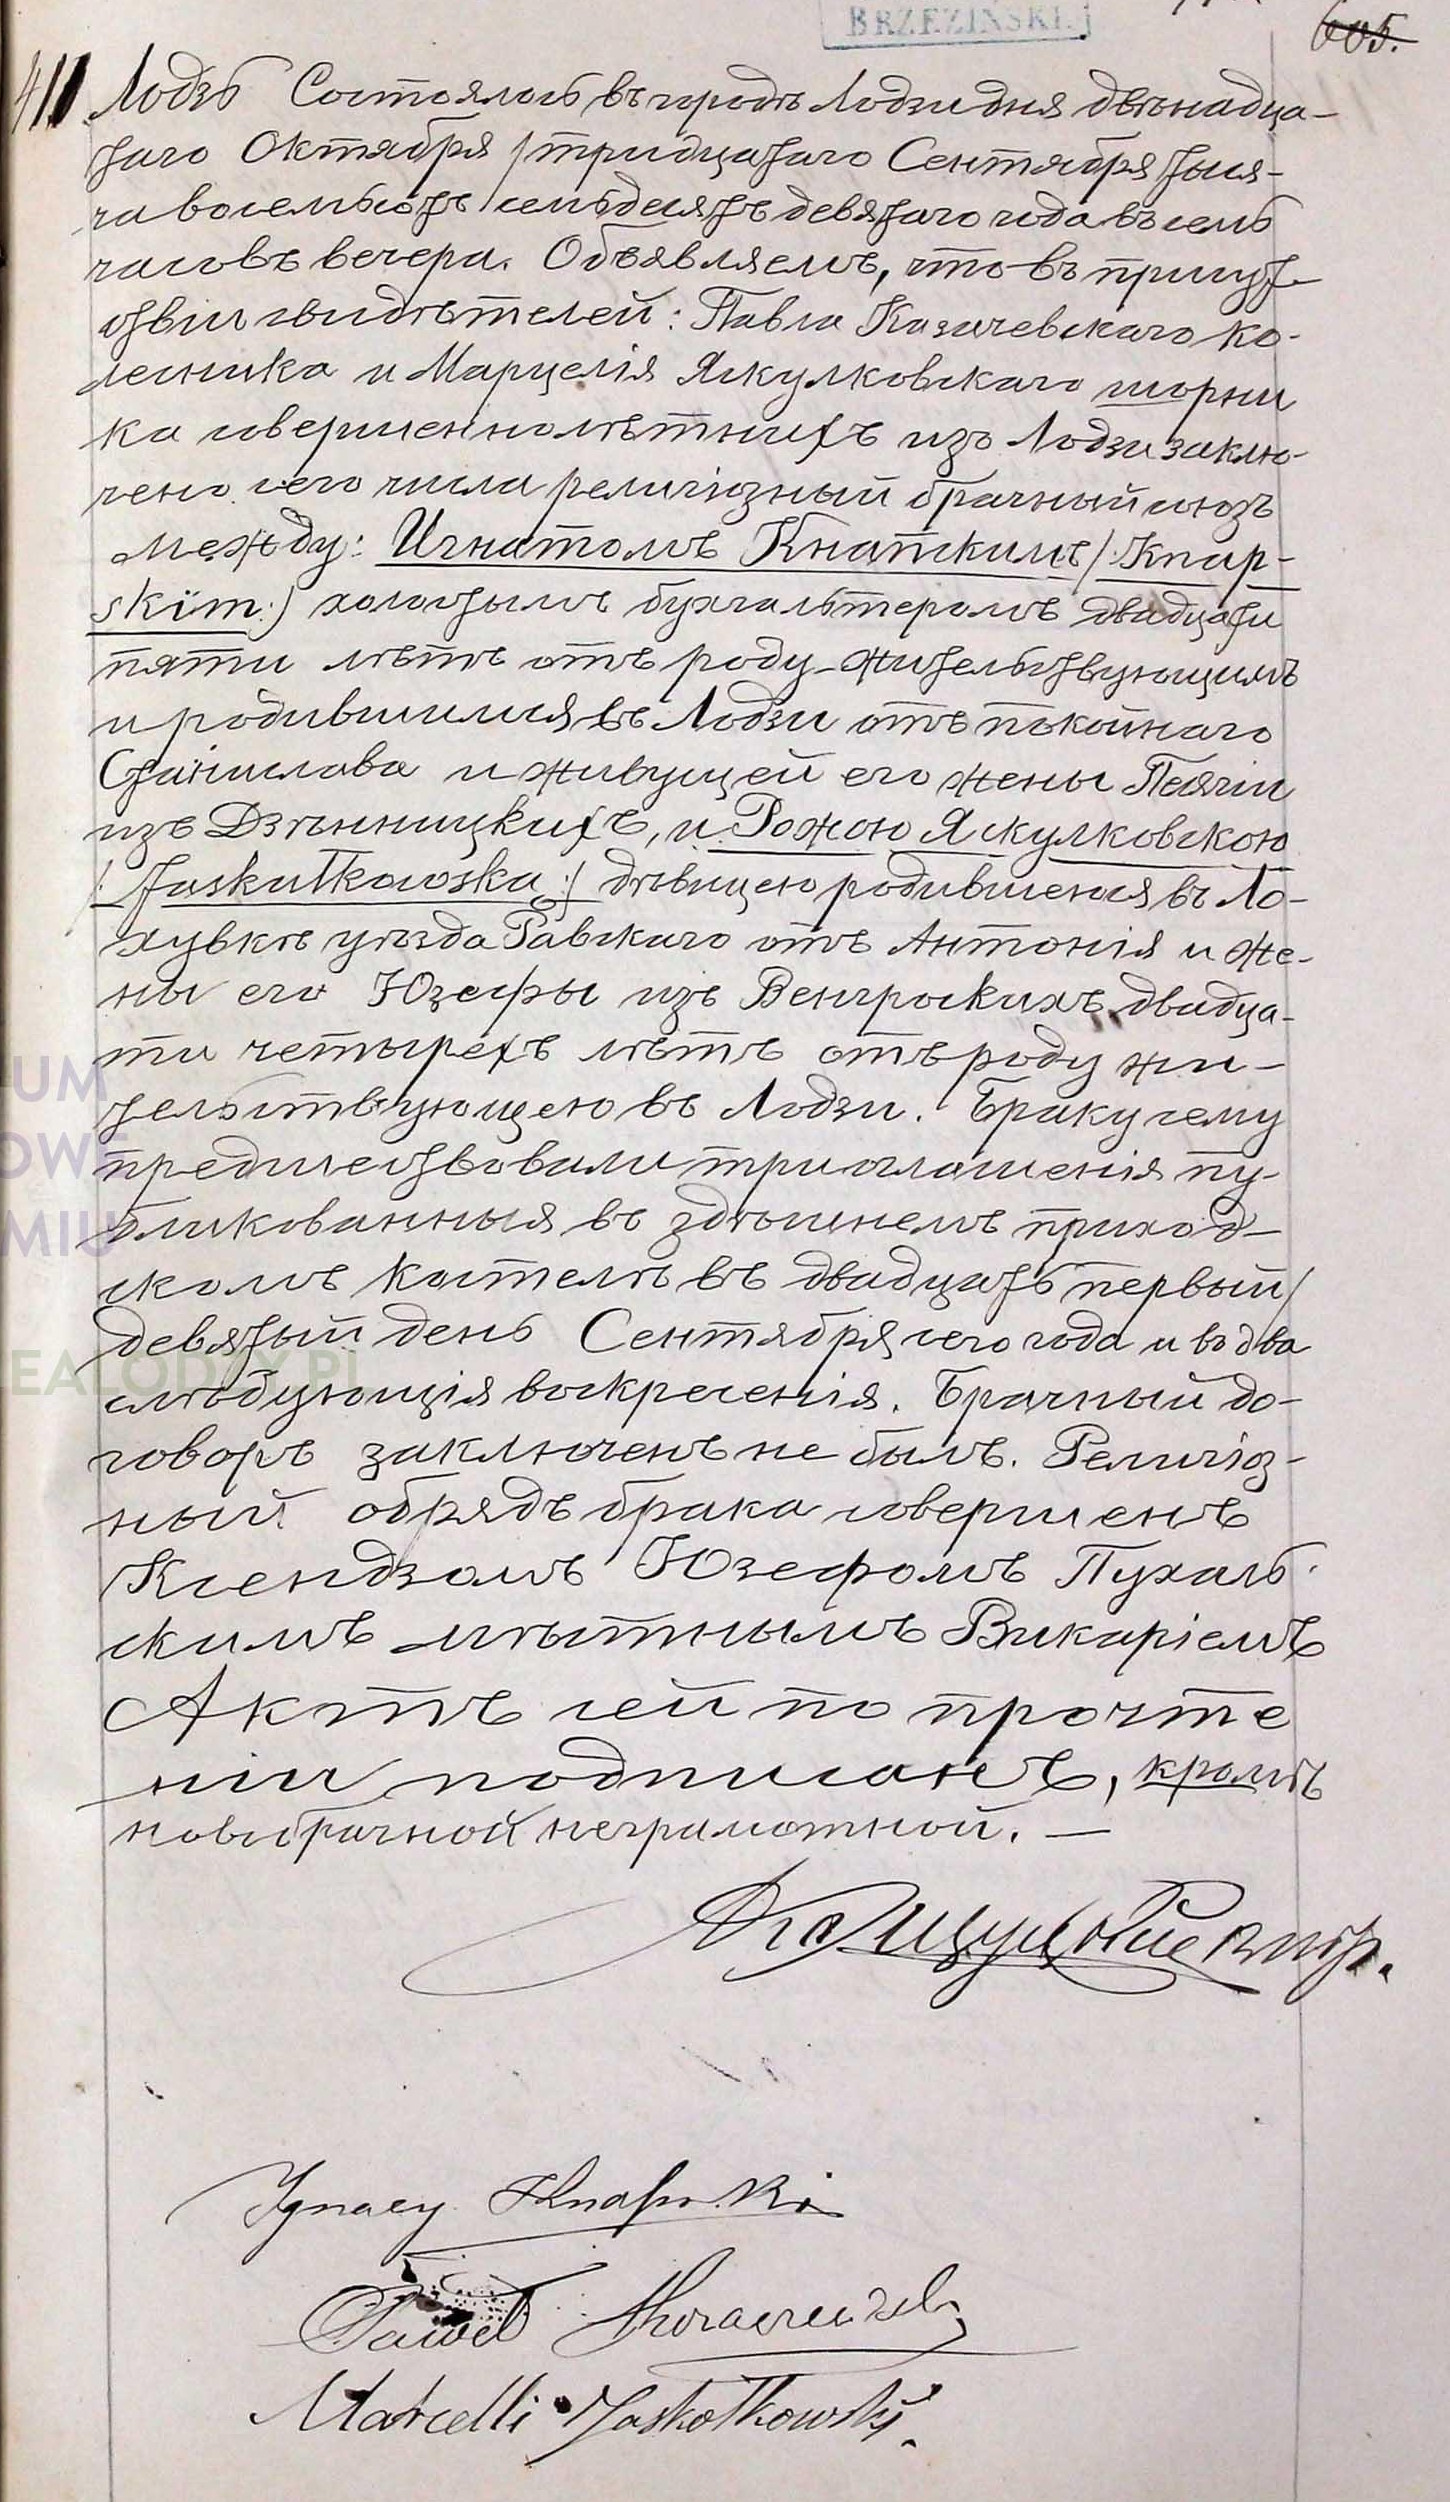 BRZEZIŃSKI.
605.
411 Лодзь Состоялось въ городѣ Лодзи дня двѣнадца-
таго Октября / тридцатаго Сентября тыся-
ча восемьсотъ семьдесятъ девятаго года въ семь
часовъ вечера. Объявляемъ, что въ присут-
ствіи свидѣтелей: Павла Козачевскаго ко-
лесника и Марцелія Яскулковскаго шорни
ка совершеннолѣтнихъ изъ Лодзи заклю-
чено сего числа религіозный брачный союзъ
между: Игнатомъ Кнапскимъ /: Knap-
skim :/ холостымъ бухгальтеромъ двадцати
пяти лѣтъ отъ роду жительствующимъ
и родившимся въ Лодзи отъ покойнаго
Станислава и живущей его жены
изъ Дзѣнницкихъ, и Рожою Яскулковскою
/: Jaskułkowska :/ дѣвицею родившеюся въ Ло-
хувкѣ уѣзда Равскаго отъ Антонія и же-
ны его Юзефы изъ Венгроскихъ двадца-
ти четырехъ лѣтъ отъ роду жи-
тельствующею въ Лодзи. Браку сему
предшествовали три оглашенія пу-
бликованныя въ здѣшнемъ приход-
скомъ костелѣ въ двадцать первый /
девятый день Сентября сего года и въ два
слѣдующія воскресенія. Брачный до-
говоръ заключенъ не былъ. Религіоз-
ный обрядъ брака совершенъ
Ксендзомъ Юзефомъ Пухаль-
скимъ мѣстнымъ Викаріемъ
Актъ сей по прочте
ніи подписанъ, кромѣ
новобрачной неграмотной. —
Ignacy Knapski
Paweł
Marcelli Jaskołkowski.